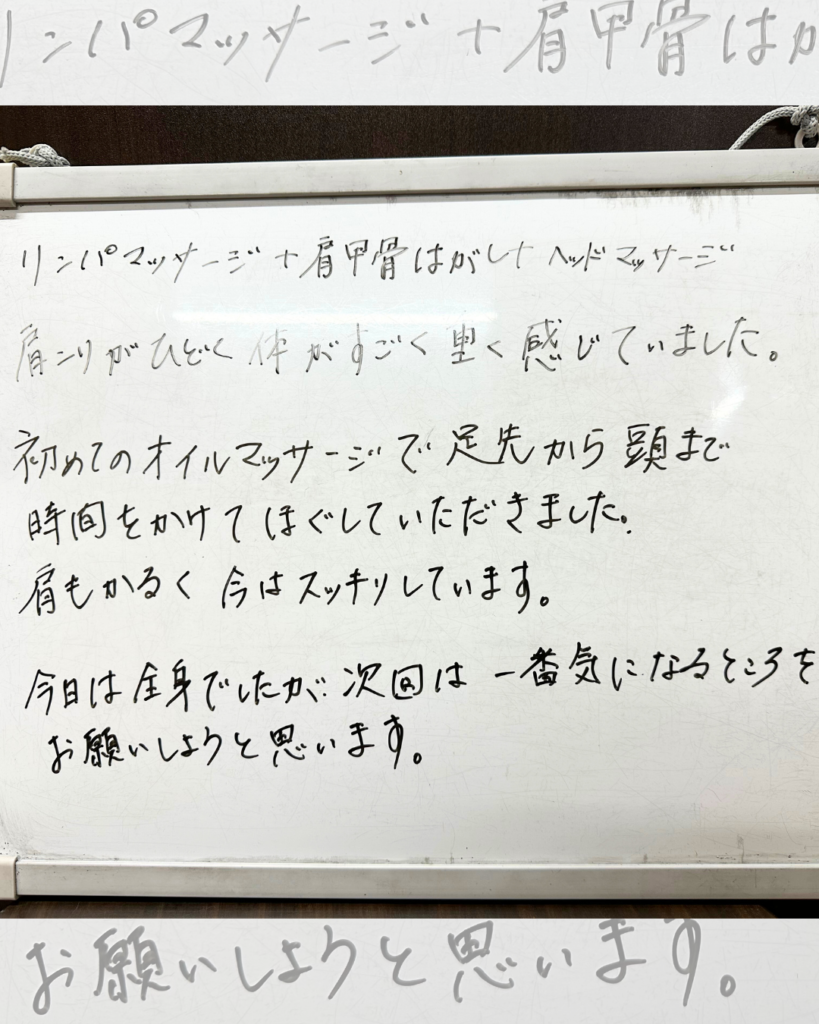 リンパマッサージ+肩甲骨はが
リンパマッサージ+肩甲骨はがし+ヘッドマッサージ
肩こりがひどく体がすごく重く感じていました。
初めてのオイルマッサージで足先から頭まで
時間をかけてほぐしていただきました。
肩もかるく今はスッキリしています。
今日は全身でしたが次回は一番気になるところを
お願いしようと思います。
お願いしようと思います。